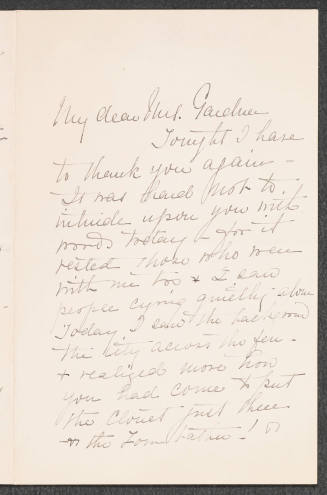 My dear Mrs. Gardner
Tonight I have
to thank you again -
It was hard not to
intrude upon you with
words today - for it
rested those who were
with me too & I saw
people crying quietly alone
Today I saw the
the City across the fen -
& realized more how
you had come & put
the Cloister just there
the